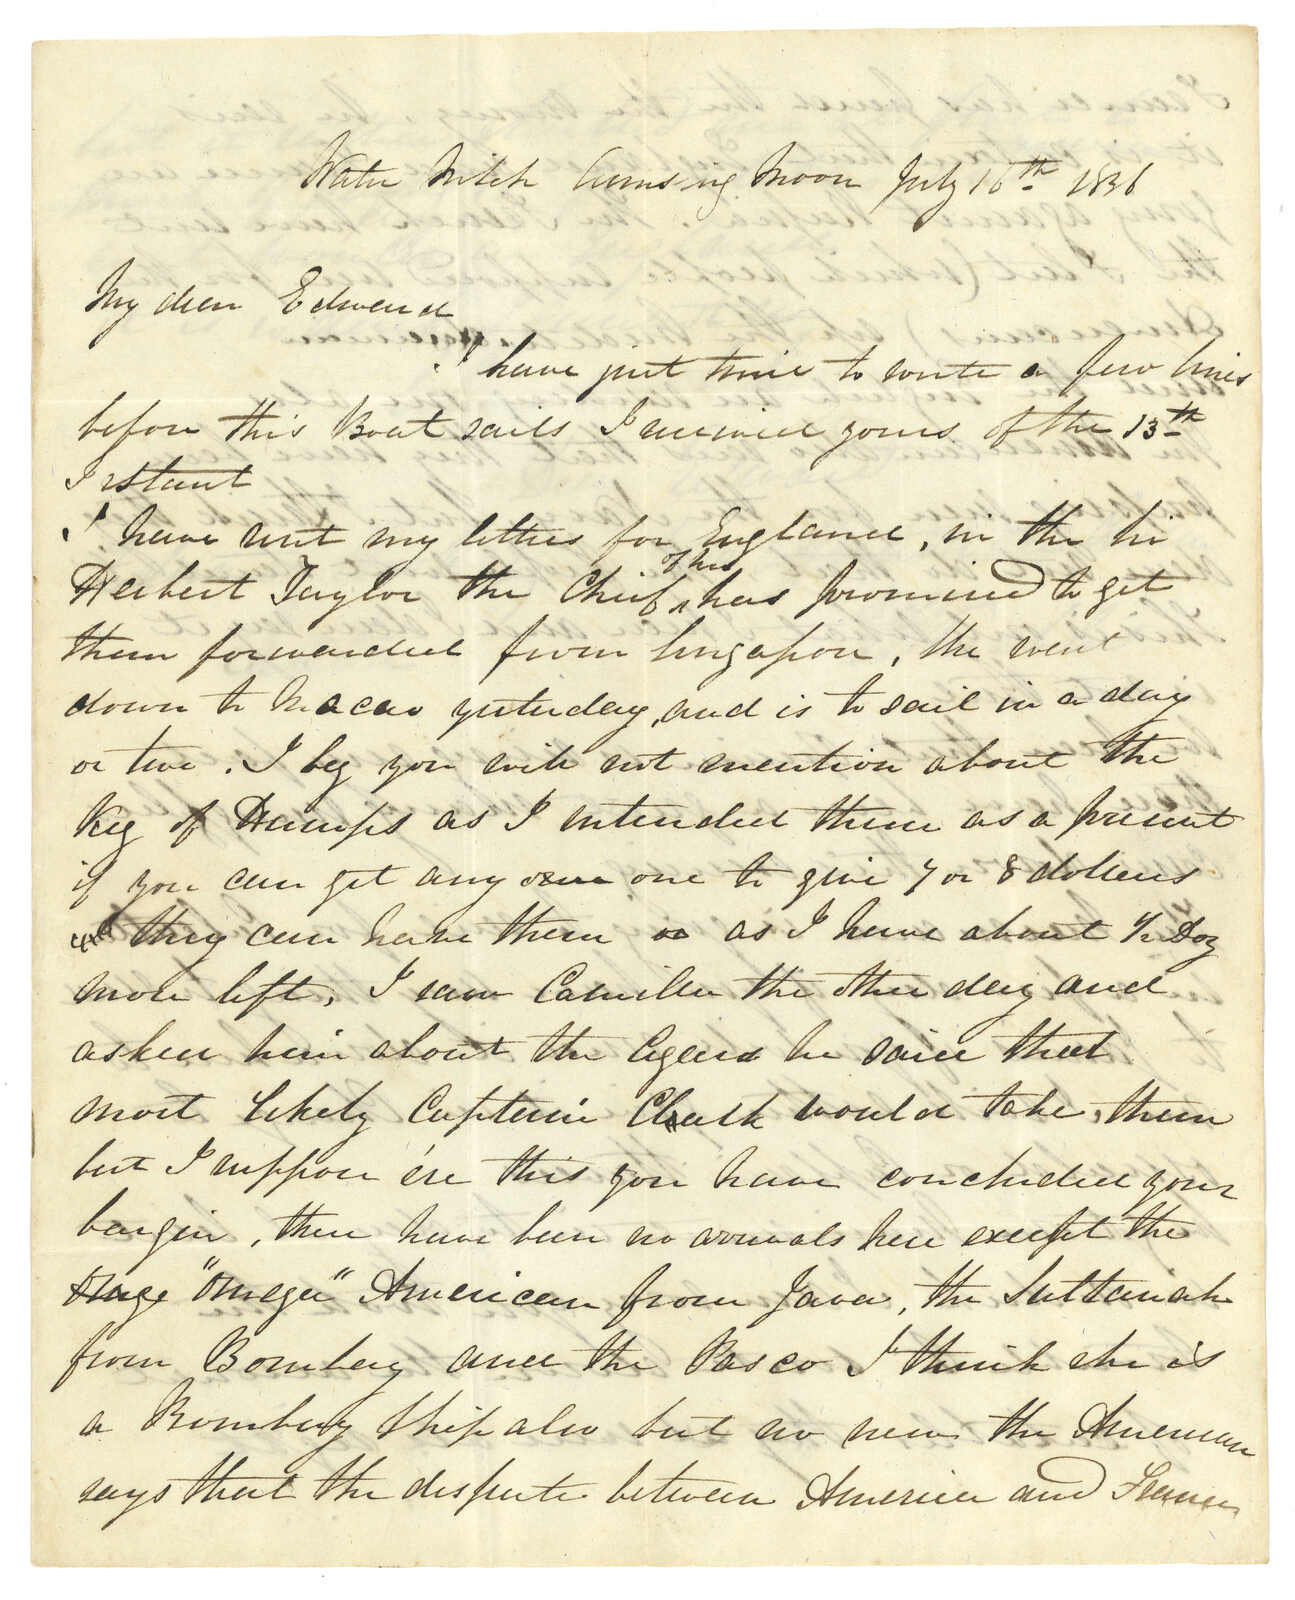 Water Witch Cumsing Moon July 16th 1836
My dear Edward
I have just time to write a few lines
before this Boat sails I received yours of the 13th
Instant
I have sent my letters for England, in the Sir
Herbert Taylor the Chief of her has promised to get
them forwarded from Singapore, the went
down to Macao yesterday, and is to sail in a day
or two. I beg you will not mention about the
Keg of Humps as I intended them as a present
if you can get any one to give 7 or 8 dollars
they can have them as I have about ½ Doz
more left, I saw Camilla the other day and
asked him about the Cigars he said that
most likely Captain Chalk would take them
but I suppose e're this you have concluded your
bargin, there have been no arrivals here except the
"Omega" American from Java, the Sultanah
from Bombay and the Pasco I think she is
a Bombay Ship also but no news the American
says that the dispute between America and France